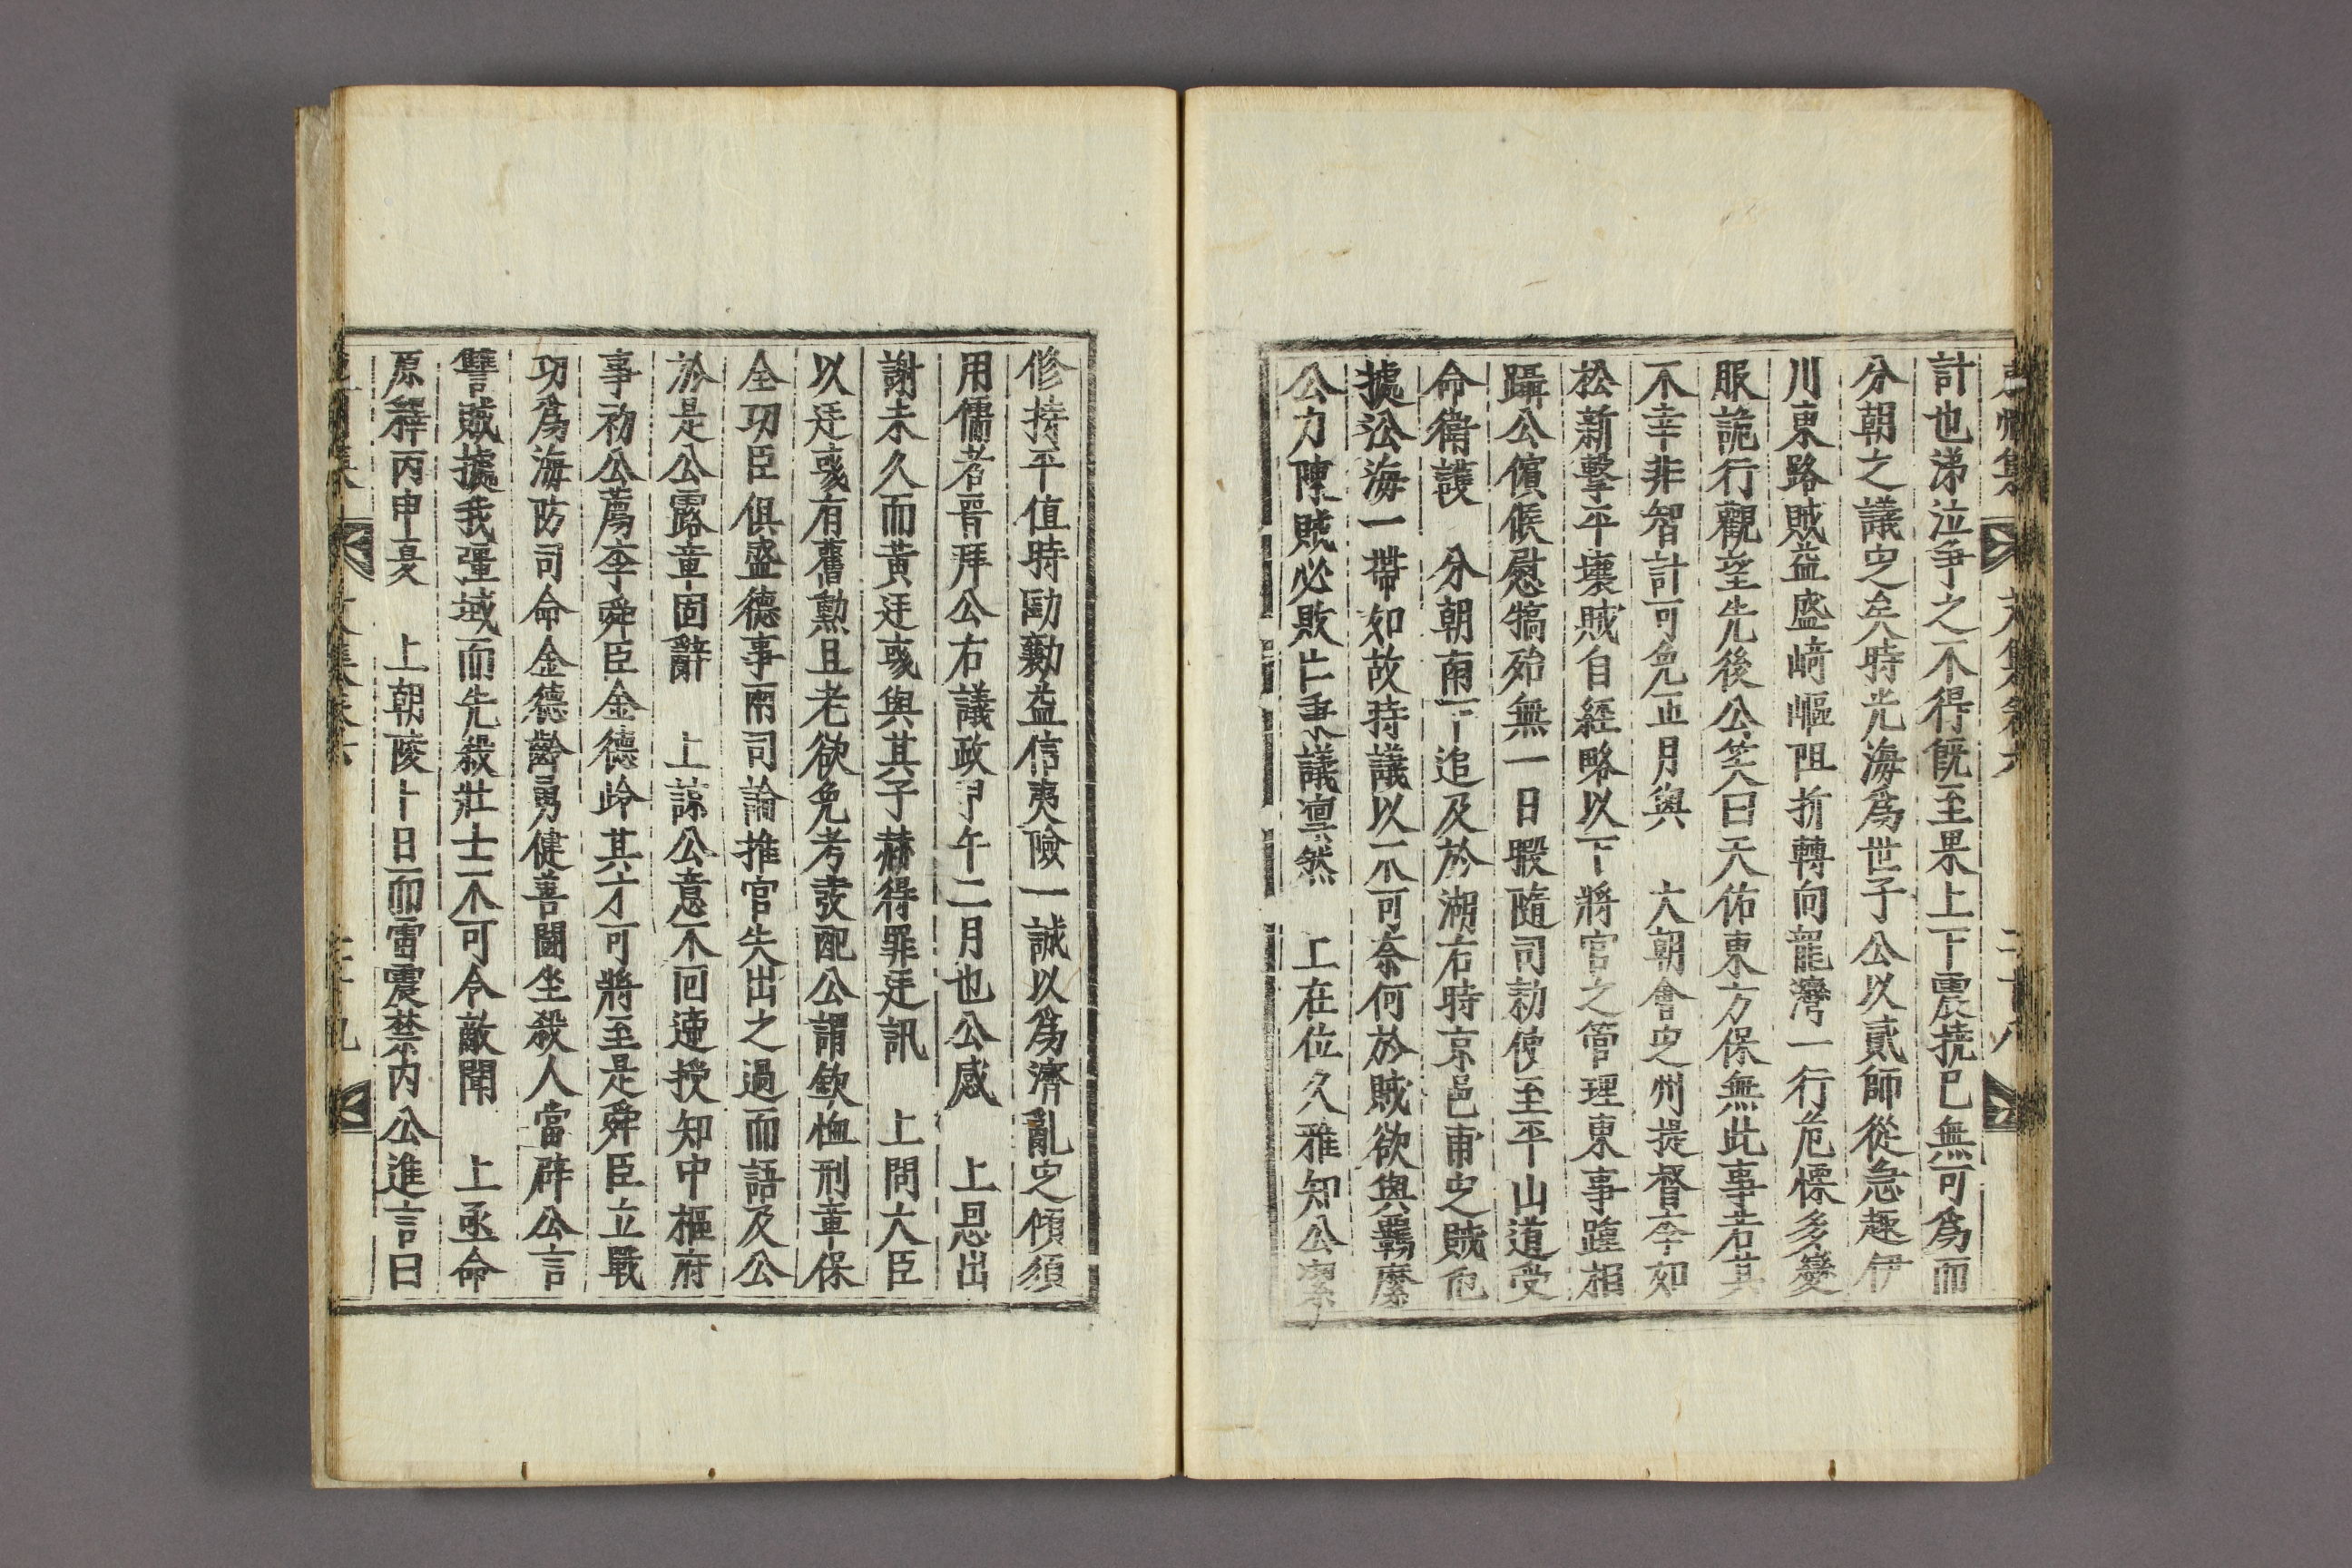 計也涕泣爭之不得旣至果上下震撓已無可爲而
分朝之議㝎矣時光海爲世子公以貳師從急趣伊
川東路賊益盛﨑嶇阻折轉向龍灣一行危慄多變
服詭行觀望先後公笑曰天佑東方保無此事若其
不幸非智計可免正月與　大朝會㝎州提督李如
松新擊平壤賊自經略以下將官之管理東事踵相
躡公儐候慰犒殆無一日暇隨司勑使至平山道受
命衛護　分朝南下追及於湖右時京邑甫㝎賊
據沿海一帶如故持議以不可奈何於賊欲與羈縻
公力陳賊必敗亡秉議凛然　上在位久雅知公潔
修持平值時勩勷益信夷險一誠以爲濟亂㝎傾須
用儒者晋拜公右議政甲午二月也公感　上恩出
謝未久而黃廷彧與其子赫得罪廷訊　上問大臣
以廷彧有舊勳且老欲免考竣配公謂欽恤刑章保
全功臣俱盛德事兩司論推官失出之過而語及公
於是公露章固辭　上諒公意不回遞授知中樞府
事初公薦李舜臣金德岭其才可將至是舜臣立戰
功爲海防司命金德齡勇健善鬪坐殺人當辟公言
讐賊據我疆域而先殺壯士不可令敵聞　上亟命
原釋丙申夏　上朝陵卜日而雷震禁內公進言曰
文集卷六